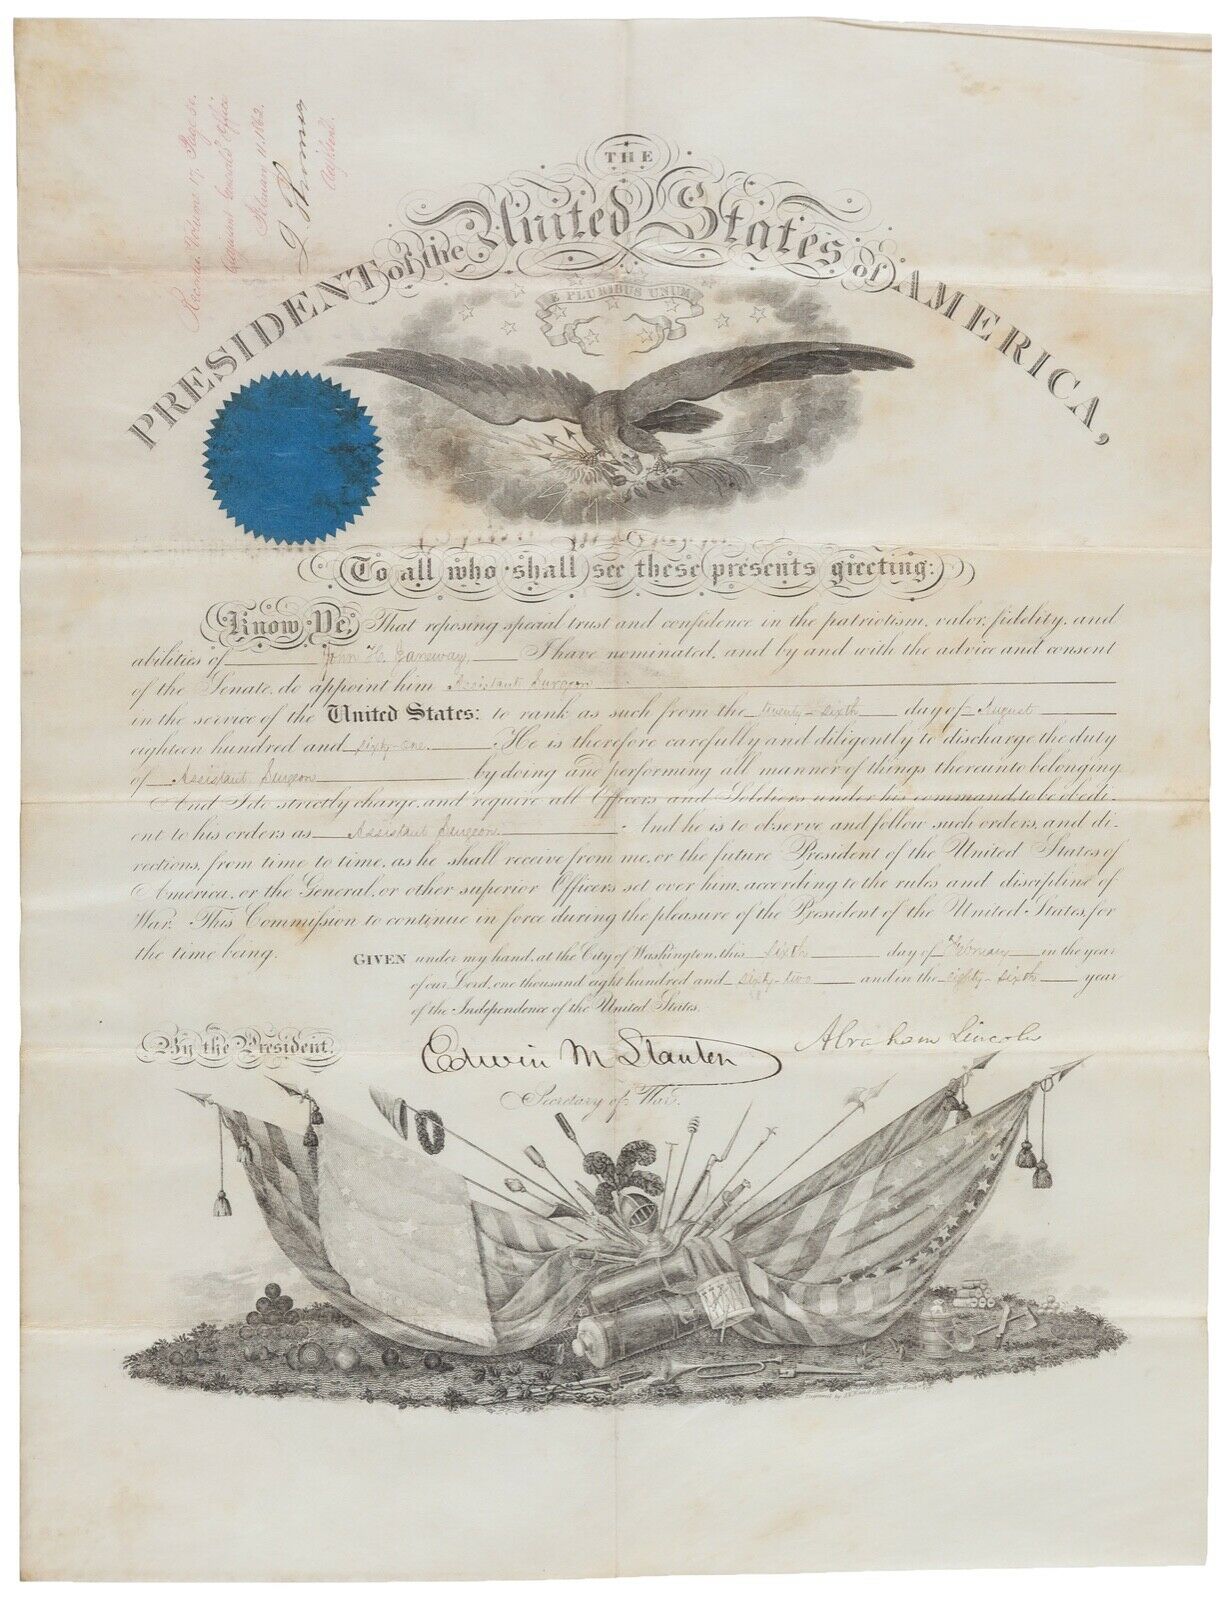 Recorded Volume 17, Page 50.
Adjutant General's Office
February 11, 1862.
L Thomas
THE
PRESIDENT of the United States of AMERICA,
E PLURIBUS UNUM
To all who shall see these presents greeting:
Know Ye, That reposing special trust and confidence in the patriotism, valor, fidelity, and
abilities of John H. Janeway, I have nominated, and by and with the advice and consent
of the Senate, do appoint him Assistant Surgeon
in the service of the United States: to rank as such from the twenty-sixth day of August
eighteen hundred and sixty-one. He is therefore carefully and diligently to discharge the duty
of Assistant Surgeon by doing and performing all manner of things thereunto belonging
And I do strictly charge, and require all Officers and Soldiers under his command, to be obedi-
ent to his orders as Assistant Surgeon. And he is to observe and follow such orders, and di-
rections, from time to time, as he shall receive from me, or the future President of the United States of
America, or the General, or other superior Officers set over him, according to the rules and discipline of
War. This Commission to continue in force during the pleasure of the President of the United States, for
the time being.
GIVEN under my hand, at the City of Washington, this sixth day of February in the year
of our Lord, one thousand eight hundred and sixty-two and in the eighty-sixth year
of the Independence of the United States.
By the President.
Abraham Lincoln
Edwin M Stanton
Secretary of War.